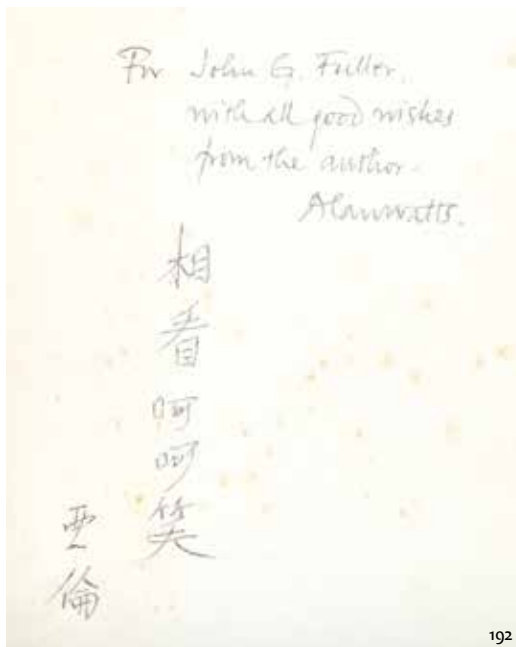 For John G. Fuller,
with all good wishes
from the author.
Alan Watts.
相看呵呵笑
亜倫
192